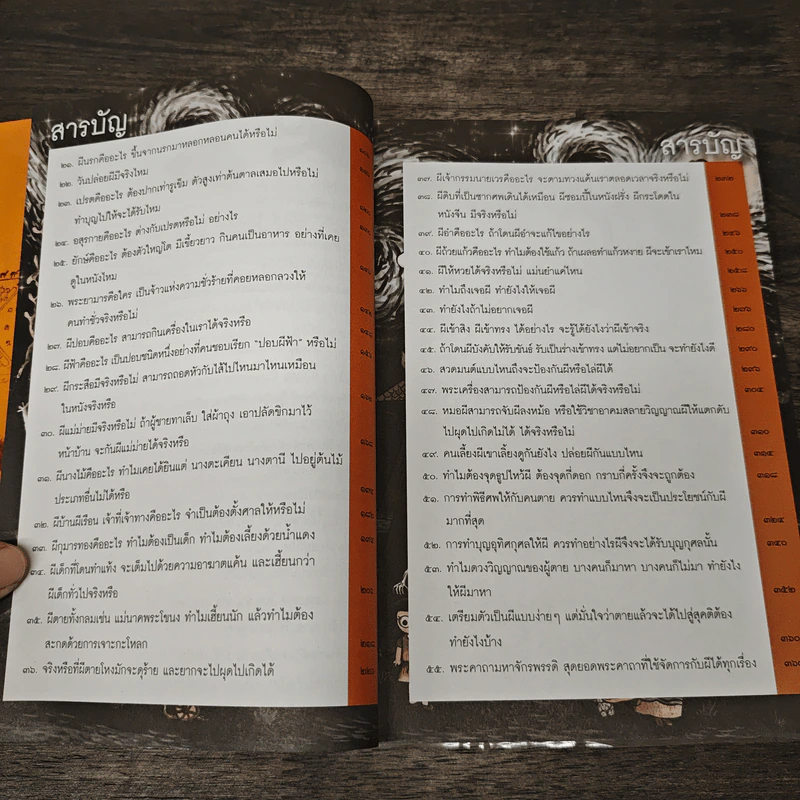 สารบัญ
๒๑. ผีนรกคืออะไร ขึ้นจากนรกมาหลอกหลอนคนได้หรือไม่
๒๒. วันปล่อยผีมีจริงไหม
๒๓. เปรตคืออะไร ต้องปากเท่ารูเข็ม ตัวสูงเท่าต้นตาลเสมอไปหรือไม่
ทำบุญไปให้จะได้รับไหม
๒๔. อสุรกายคืออะไร ต่างกับเปรตหรือไม่ อย่างไร
๒๕. ยักษ์คืออะไร ต้องตัวใหญ่โต มีเขี้ยวยาว กินคนเป็นอาหาร อย่างที่เคย
ดูในหนังไหม
๒๖. พระยามารคือใคร เป็นจ้าวแห่งความชั่วร้ายที่คอยหลอกลวงให้
คนทำชั่วจริงหรือไม่
๒๗. ผีปอบคืออะไร สามารถกินเครื่องในเราได้จริงหรือ
๒๘. ผีฟ้าคืออะไร เป็นปอบชนิดหนึ่งอย่างที่คนชอบเรียก "ปอบผีฟ้า" หรือไม่
๒๙. ผีกระสือมีจริงหรือไม่ สามารถถอดหัวกับไส้ไปไหนมาไหนเหมือน
ในหนังจริงหรือ
๓๐. ผีแม่ม่ายมีจริงหรือไม่ ถ้าผู้ชายทาเล็บ ใส่ผ้าถุง เอาปลัดขิกมาไว้
หน้าบ้าน จะกันผีแม่ม่ายได้จริงหรือ
๓๑. ผีนางไม้คืออะไร ทำไมเคยได้ยินแต่ นางตะเคียน นางตานี ไปอยู่ต้นไม้
ประเภทอื่นไม่ได้หรือ
๓๒. ผีบ้านผีเรือน เจ้าที่เจ้าทางคืออะไร จำเป็นต้องตั้งศาลให้หรือไม่
๓๓. ผีกุมารทองคืออะไร ทำไมต้องเป็นเด็ก ทำไมต้องเลี้ยงด้วยน้ำแดง
๓๔. ผีเด็กที่โดนทำแท้ง จะเต็มไปด้วยความอาฆาตแค้น และเฮี้ยนกว่า
ผีเด็กทั่วไปจริงหรือ
๓๕. ผีตายทั้งกลมเช่น แม่นาคพระโขนง ทำไมเฮี้ยนนัก แล้วทำไมต้อง
สะกดด้วยการเจาะกะโหลก
๓๖. จริงหรือที่ผีตายโหงมักจะดุร้าย และยากจะไปผุดไปเกิดได้
สารบัญ
๓๗. ผีเจ้ากรรมนายเวรคืออะไร จะตามทวงแค้นเราตลอดเวลาจริงหรือไม่ ๒๓๒
๓๘. ผีดิบที่เป็นซากศพเดินได้เหมือน ผีซอมบี้ในหนังฝรั่ง ผีกระโดดใน
หนังจีน มีจริงหรือไม่ ๒๓๘
๓๙. ผีอำคืออะไร ถ้าโดนผีอำจะแก้ไขอย่างไร ๒๔๖
๔๐. ผีถ้วยแก้วคืออะไร ทำไมต้องใช้แก้ว ถ้าเผลอทำแก้วหงาย ผีจะเข้าเราไหม ๒๕๐
๔๑. ผีให้หวยได้จริงหรือไม่ แม่นยำแค่ไหน ๒๕๘
๔๒. ทำไมถึงเจอผี ทำยังไงให้เจอผี ๒๖๖
๔๓. ทำยังไงถ้าไม่อยากเจอผี ๒๗๖
๔๔. ผีเข้าสิง ผีเข้าทรง ได้อย่างไร จะรู้ได้ยังไงว่าผีเข้าจริง ๒๘๐
๔๕. ถ้าโดนผีบังคับให้รับขันธ์ รับเป็นร่างเข้าทรง แต่ไม่อยากเป็น จะทำยังไงดี ๒๙๐
๔๖. สวดมนต์แบบไหนถึงจะป้องกันผีหรือไล่ผีได้ ๒๙๖
๔๗. พระเครื่องสามารถป้องกันผีหรือไล่ผีได้จริงหรือไม่ ๓๐๔
๔๘. หมอผีสามารถจับผีลงหม้อ หรือใช้วิชาอาคมสลายวิญญาณผีให้แตกดับ
ไปผุดไปเกิดไม่ได้ ได้จริงหรือไม่ ๓๑๐
๔๙. คนเลี้ยงผีเขาเลี้ยงดูกันยังไง ปล่อยผีกันแบบไหน ๓๑๔
๕๐. ทำไมต้องจุดธูปไหว้ผี ต้องจุดกี่ดอก กราบกี่ครั้งจึงจะถูกต้อง ๓๑๘
๕๑. การทำพิธีศพให้กับคนตาย ควรทำแบบไหนจึงจะเป็นประโยชน์กับผี
มากที่สุด ๓๒๔
๕๒. การทำบุญอุทิศกุศลให้ผี ควรทำอย่างไรผีจึงจะได้รับบุญกุศลนั้น ๓๔๐
๕๓. ทำไมดวงวิญญาณของผู้ตาย บางคนก็มาหา บางคนก็ไม่มา ทำยังไง
ให้ผีมาหา ๓๕๒
๕๔. เตรียมตัวเป็นผีแบบง่ายๆ แต่มั่นใจว่าตายแล้วจะได้ไปสู่สุคติต้อง
ทำยังไงบ้าง ๓๖๐
๕๕. พระคาถามหาจักรพรรดิ สุดยอดพระคาถาที่ใช้จัดการกับผีได้ทุกเรื่อง